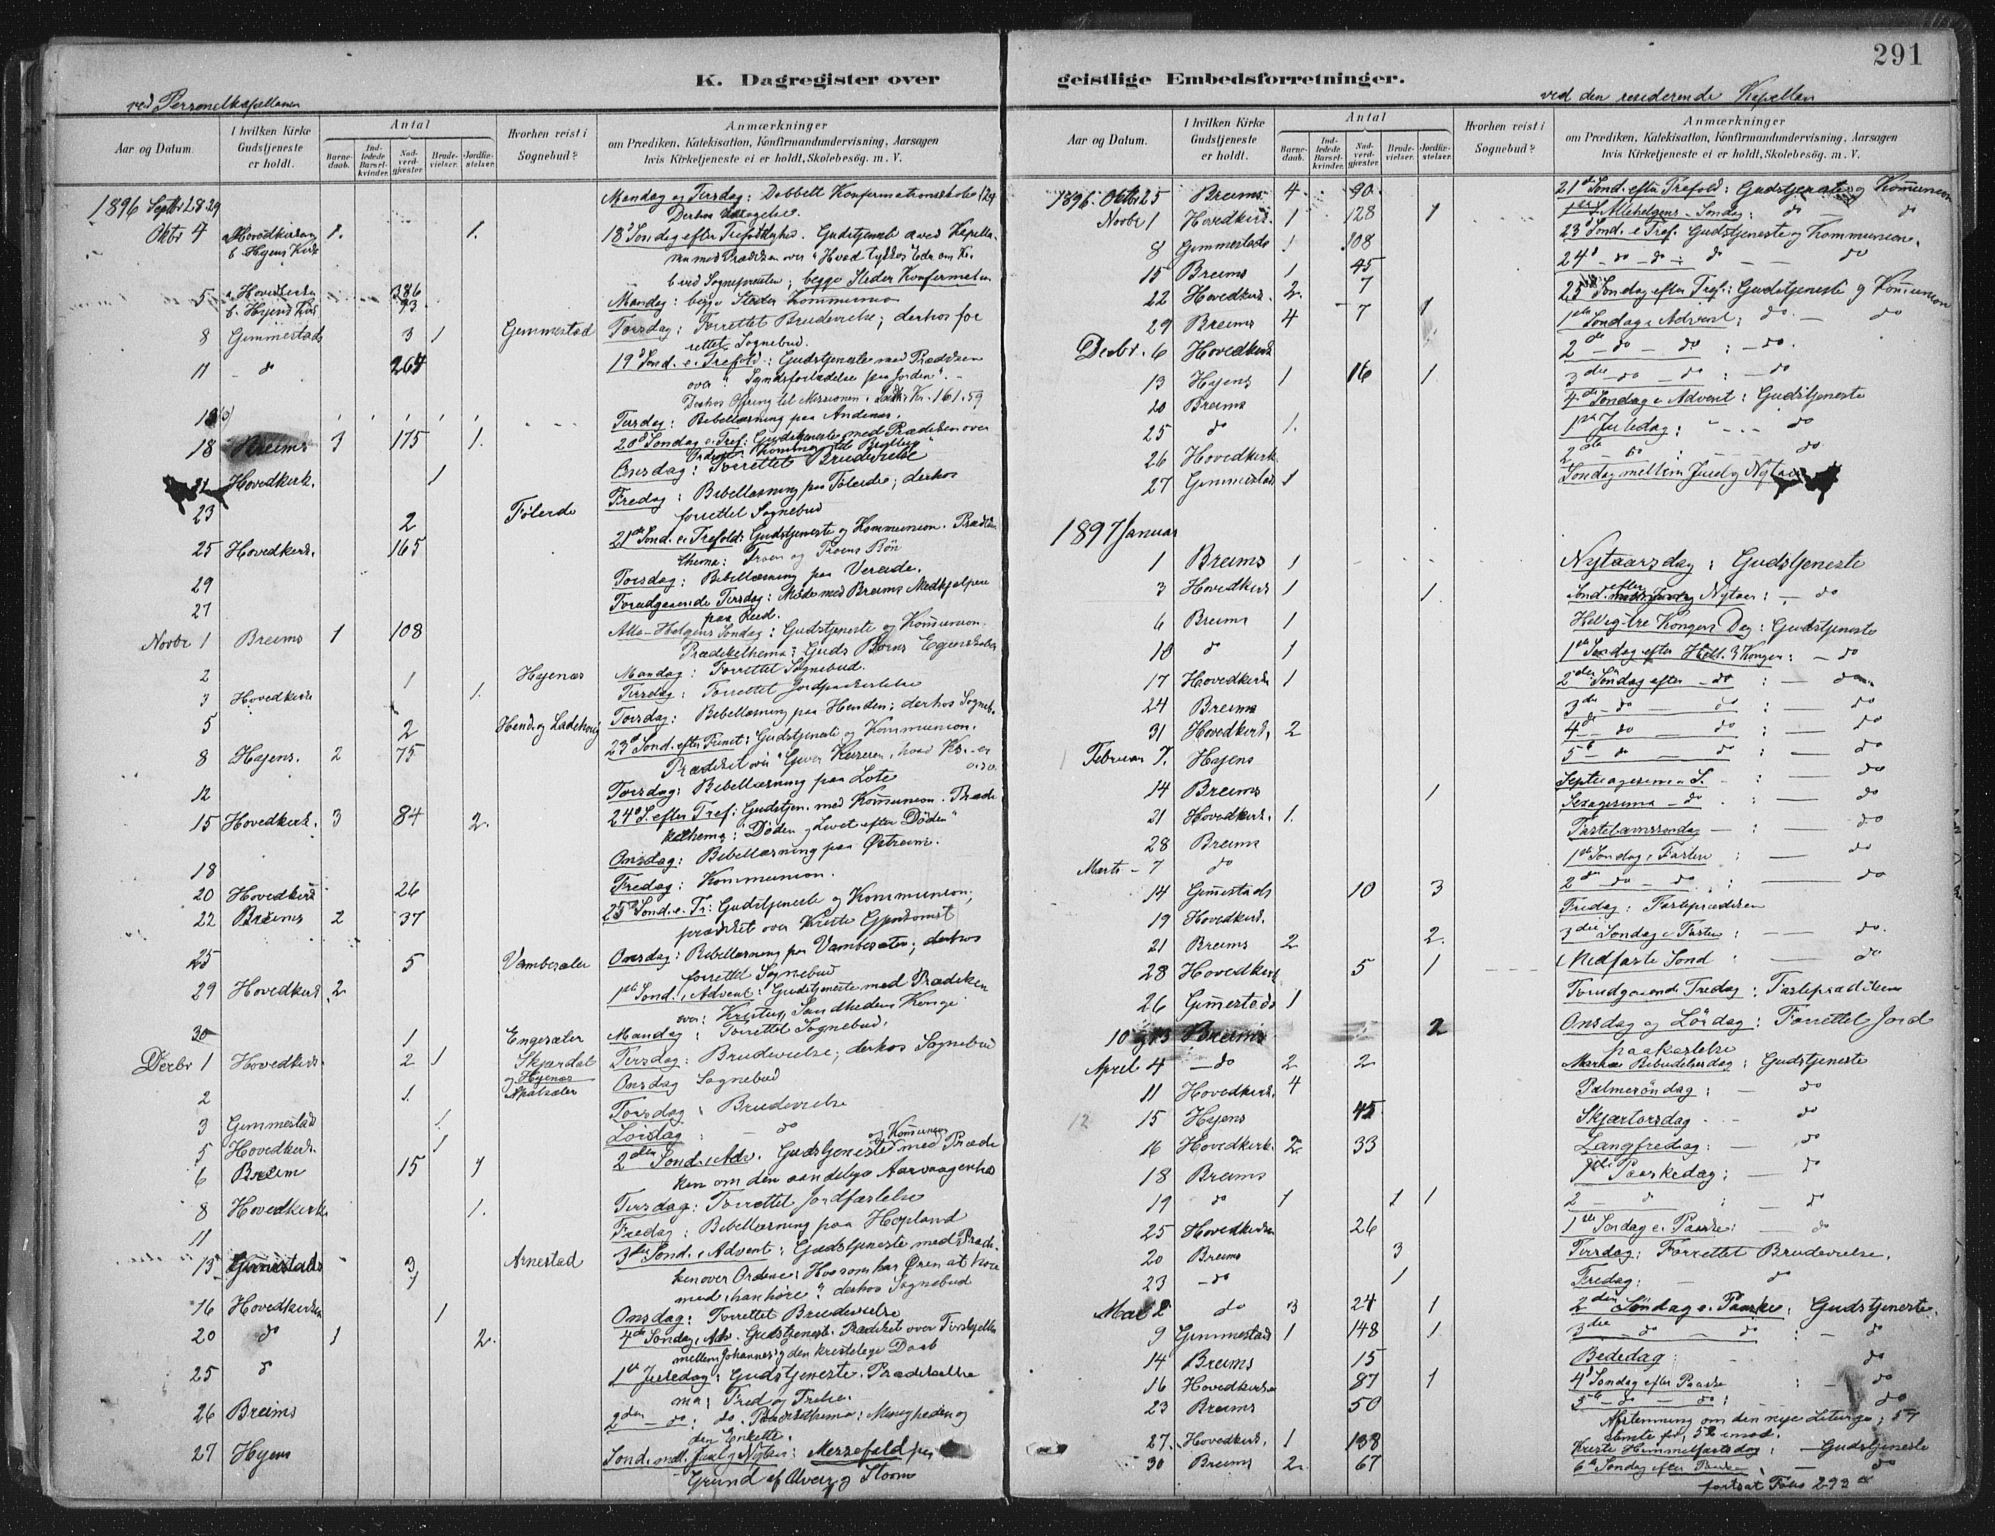 291
K. Dagregister over
geistlige Embedsforretninger.
ved Personelkapellanen
ved den residerende Kapellan
Aar og Datum.
I hvilken Kirke Gudstjeneste er holdt.
Antal
Barnedaab.
Indledede Barselkvinder.
Nadverdgjæster.
Brudevielser.
Jordfæstelser.
Hvorhen reist i Sognebud?
Anmærkninger
om Prædiken, Katekisation, Konfirmandundervisning, Aarsagen
hvis Kirketjeneste ei er holdt, Skolebesøg. m. V.
1896 Septbr 28 29 Mandag og Tirsdag: Dobbelt Konfirmationsskole 129
Oktbr 4 a Hovedkirken 1. 1. 18d Søndag efter Trefoldighed. Gudstjeneste a ved Kapella
b Hyens Kirke nen med Prædiken over "Hvad tykkes Eder om Kr.
b ved Sognepresten; begge Steder Konfirmation
5 a Hovedkirken 386 Mandag: begge Steder Kommunion
b. Hyens Kirke 93
8 Gimmestads 3 1 Gimmestad Torsdag: Forrettet Brudevielse; derhos for
rettet Sognebud.
11 - do 264 19d Sond. e. Trefold: Gudstjeneste med Prædiken
over "Syndsforladelse paa Jorden". -
Derhos Ofring til Missionen. Kr. 161.59
Tirsdag: Bibellæsning paa Andenæs.
18 Breims 3 175 1. 20d Søndag e. Tref: Gudstjeneste med Prædiken over
21 Hovedkirk. 1 Onsdag: Forrettet Brudevielse
23 2 Føleide Fredag: Bibellæsning paa Føleide; derhos
forrettet Sognebud
25 Hovedkirk. 165 21de Sond. e. Trefold: Gudstjeneste og Kommunion. Prædiken
thema: Troen og Troens Bøn
29 Torsdag: Bibellæsning paa Vereide.
27 Forudgaaende Tirsdag: Møde med Breims Medhjælpere
paa Reed.
Novbr 1 Breims 1 108 Alle-Helgens Søndag: Gudstjeneste og Kommunion.
Prædikethema: Guds Børns Egenskaber
2 1 Hyenæs Mandag: Forrettet Sognebud.
3 Hovedkirk 1. Tirsdag: Forrettet Jordpaakastelse
5 2 Torsdag: Bibellæsning paa Henden; derhos Sogneb.
8 Hyens. 2 75 23d Sond. efter Trinit: Gudstjeneste og Kommunion.
Prædiket over "Giver Keiseren, hvad Ks. er
12 Torsdag: Bibellæsning paa Lote
15 Hovedkirk. 3 84 2. 24d S. efter Tref: Gudstjen. med Kommunion. Præde
kethema: "Døden og Livet efter Døden"
18 Onsdag: Bibellæsning paa Østreim.
20 Hovedkirk 26 Fredag: Kommunion.
22 Breims 2 37 25d Sond. e. Tr: Gudstjeneste og Kommunion;
prædiket over Kristi Gjenkomst
25 5 Vambesæter Onsdag: Bibellæsning paa Vambesæter; derhos
forrettet Sognebud
29 Hovedkirk 2 1ste Sond. i Advent: Gudstjeneste med Prædiken
over: Kristus, Sandhedens Konge.
30 1 Engesæter Mandag: Forrettet Sognebud.
Decbr 1 Hovedkirk. 2 1 Skjærdal Tirsdag: Brudevielse; derhos Sognebud
og Hyenæs
2 1. Apalsæter Onsdag Sognebud
3 Gimmestad 1. Torsdag: Brudevielse
5 Hovedkirk. 1 Lørdag: - do
6 Breim 15 1 2den Sond. i Adv. Gudstjeneste og Kommunion med Præde
ken om den aandelige Aarvaagenhed
8 Hovedkirk 1. Tirsdag: Forrettet Jordfæstelse
11 Fredag: Bibellæsning paa Hopland
13 Gimmestads 3 Arnestad 3die Sond. i Advent: Gudstjeneste med Præde
ken over Ordene: Hvo som har Øren at høre
med, han høre"; derhos Sognebud
16 Hovedkirken 1 Onsdag: Forrettet Brudevielse
20 do 1 2. 4de Søndag i Adv. Gudstjeneste. Prædiket over Forskjellen
mellem Johannes' og den kristelige Daab
25 d 1ste Juledag: Gudstjeneste. Prædikethe
ma: Fred og Frelse.
26 Breims 2den - do: do. Prædikethema: Menigheden og
den Enkelte.
27 Hyens Sond. mell. Jul og Nytaar: Messefald paa
Grund af Uveir og Storm
1896 Oktbr 25 Breims 4. 90. 21d Sond. efter Trefold: Gudstjeneste og Kommunion
Novbr 1 Hovedkirk. 1 128 1 Allehelgens-Søndag: do do
8 Gimmestads 1 108 23 Sond. e Tref. Gudstjeneste og Kommunion.
15 Breims 1 45 24d - do - do - : do
22 Hovedkirk. 2. 7 25 Søndag efter Tref: Gudstjeneste og Kommunion
29 Breims 4 7 1 1ste Søndag i Advent: do. - do
Decbr. 6 Hovedkirk 2de - do - do : - do.
13 Hyens 1 16 1 3die - do - do : - do
20 Breims 4de Søndag i Advent: Gudstjeneste
25 do 1. 1ste Juledag: " - - do
26 Hovedkirk 2de - do : - - do
27 Gimmestad 1 Søndag mellem Jul og Nytaar
1897 Januar
1 Breims 1 Nytaarsdag: Gudstjeneste
3 Hovedkirk 1 1 Sond. efter Nytaar: - do
6 Breims 1 Hellig-tre Kongers Dag: Gudstjeneste
10 do 1 1ste Søndag efter Hell. 3 Konger: - do
17 Hovedkirken 1 2den Søndag efter - do : - do
24 Breims 3die - do - do : - do
31 Hovedkirk. 2 4de - do - do : - do
Februar 7. Hyens 5te - do - do : - do
14 Breims 1 Septuagesima S. - : - do
21 Hovedkirk. 1. Sexagesima - do. : - do
28 Breims Fastelavnssøndag - : - do
Marts - 7 do 1ste Søndag i Fasten : - do
14 Gimmestads 10 3 2den - do - do : - do
19 Hovedkirk. Fredag: Fasteprædiken
21 Breims 2 2. 3die Søndag i Fasten: - do.
28 Hovedkirk 5 1 Midfaste Sond : - do
26 Gimmestads 1 Forudgaaende Fredag: Fasteprædiken
10 og 13 Breims 2 Onsdag og Lørdag: Forrettet Jord
paakastelse
April 4 - do 2 2 Mariæ Bebudelsesdag: Gudstjeneste
11 Hovedkirk. 4 Palmesøndag: - do
15 Hyens 45 Skjærtorsdag - do
16 Hovedkirk 2 33 Langfredag: - do
18 Breims 1ste Paaskedag: - do
19 do 1 1 1 2 - d : - do
25 Hovedkirken 26 1ste Søndag e. Paaske: - do
20 Breims 3 Tirsdag: Forrettet Brudevielse.
23 - do 1 Fredag: - do
Mai 2 do 3 24 1 2den Søndag e. Paaske: Gudstjeneste.
9 Gimmestad 1 148 1 3die - do - do : - do
14 Breims 15 Bededag : - do
16 Hovedkirken 87 1 4d Søndag efter Paaske : - do
23 Breims 50 5te - do - do : do
Afstemning om den nye Liturgi; 57
stemte for, 52 imod.
27. Hovedkirk. 1 138 Kristi Himmelfartsdag: - Gudstjeneste
30 Breims 2. 67 6te Søndag efter Paaske - do
fortsat Folio 293